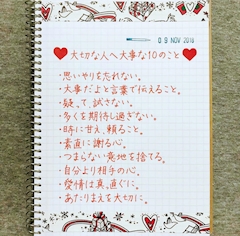 09 NOV 2016
大切な人へ大事な10のこと
・思いやりを忘れない。
・大事だよと言葉で伝えること。
・疑って試さない。
・多くを期待し過ぎない。
・時に甘え、頼ること。
・素直に謝る心。
・つまらない意地を捨てる。
・自分より相手の心。
・愛情は真っ直ぐに。
・あたりまえを大切に。